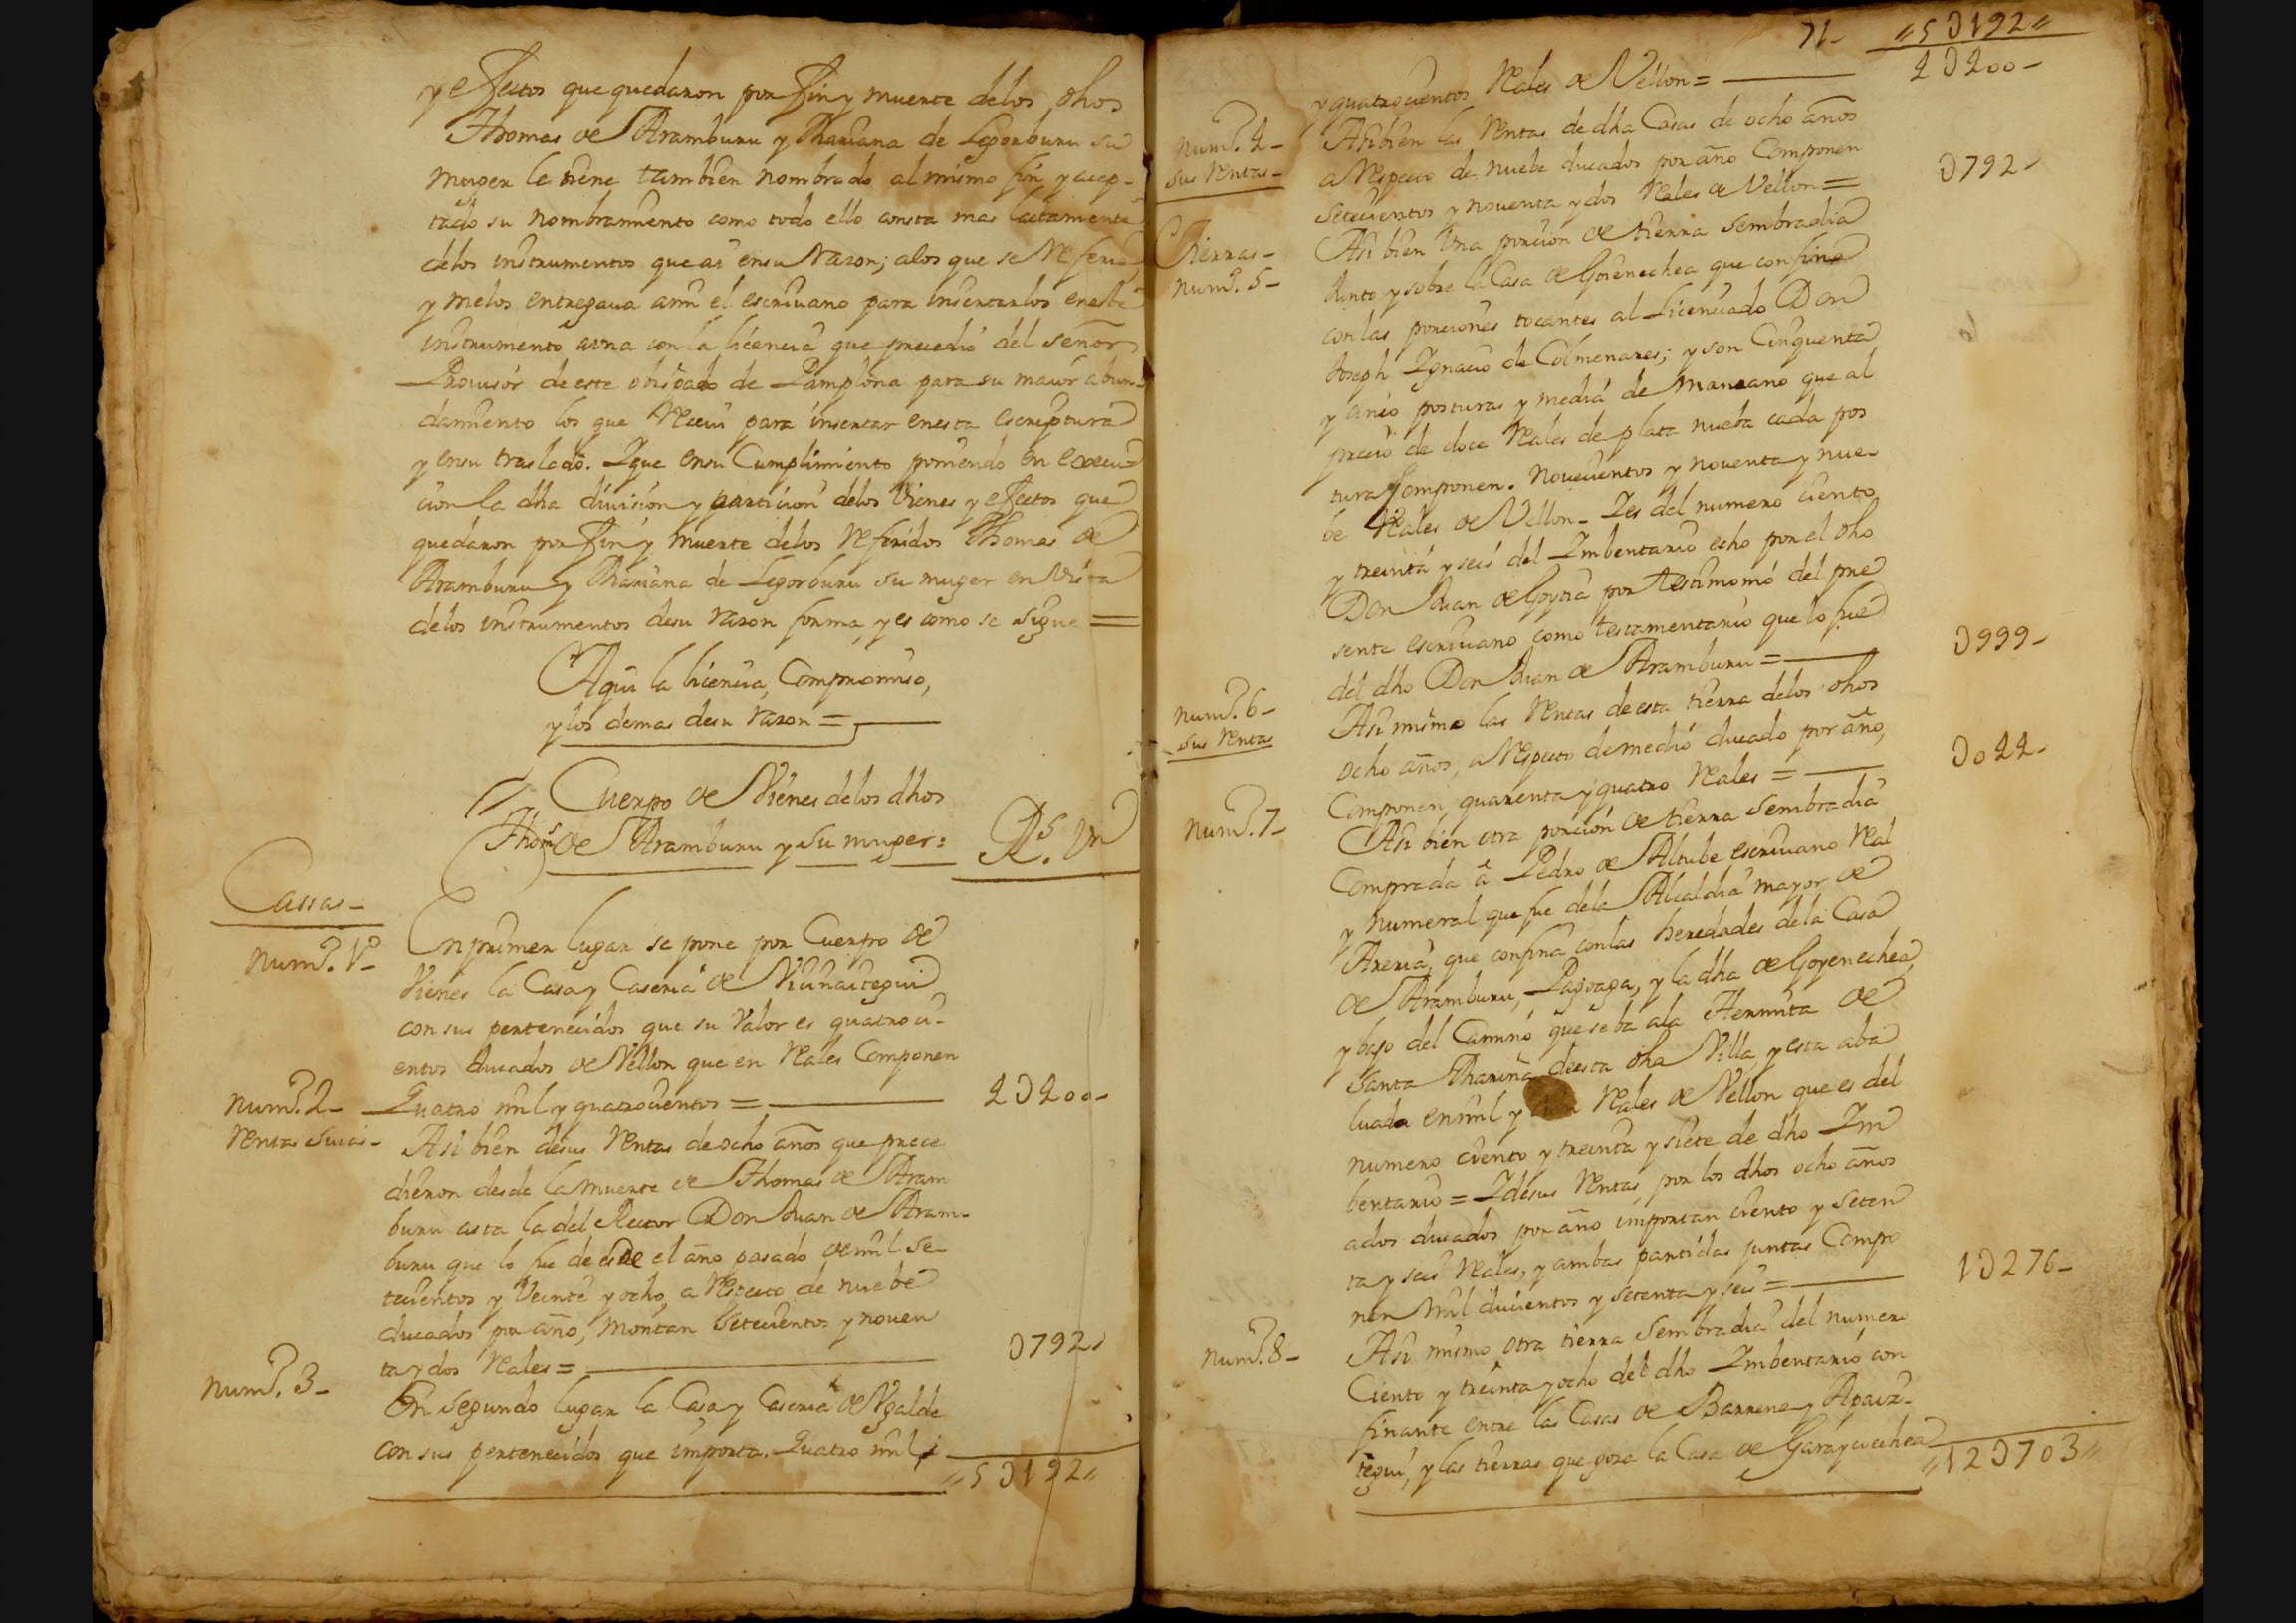 y effectos que quedaron por fin y muerte delos dhos
Thomas de Aramburu y Mariana de Legorburu su
muger le tiene tambien nombrado al mismo fin y acep-
tado su nombramiento como todo ello consta mas latamente
delos instrumentos que ai ensu razon; alos que se refirio,
y melos entregava ami el escrivano para insertarlos eneste
instrumento con la licencia que precedio del señor
Provisor de este obispado de Pamplona para su maior abun-
damiento los que recivi para insertar enesta escriptura
y ensu traslado. Y que ensu Cumplimiento poniendo en execu-
cion la dha division y particion delos vienes y effectos que
quedaron por fin y muerte delos referidos Thomas de
Aramburu y Mariana de Legorburu su muger en vista
delos instrumentos desu razon forma, y es como se sigue =
Aqui la licencia, Compromiso,
y los demas desu razon =
Cuerpo de Vienes delos dhos
Thos de Aramburu y su muger: Rs. Vn
Cassas-
Num.o 1o-
En primer lugar se pone por Cuerpo de
Vienes la Casa y Caseria de Vicunaitegui
con sus pertenecidos que su valor es quatroci-
entos ducados de Vellon que en reales Componen
Quatro mil y quatrocientos = 4U400-
Num.o 2-
rentas suias-
Asi bien desus rentas de ocho años que prece
dieron desde la muerte de Thomas de Aram
buru asta la del Rector Don Juan de Aram-
buru que lo fue desde el año pasado de mil se-
tecientos y Veinte y ocho, a respecto de nuebe
ducados por año, montan setecientos y noven
ta y dos reales = U792-
Num.o 3-
En segundo lugar la Casa y Caseria de Ugalde
con sus pertenecidos que importa. Quatro mil
"5U192"
71- "5U192"
y quatrocientos reales de Vellon = 4U400-
Num.o 4-
sus rentas-
Asi bien las rentas de dha Casas de ocho años
a respecto de nuebe ducados por año Componen
setecientos y noventa y dos reales de Vellon = U792-
Tierras-
Num.o 5-
Asi bien una porcion de tierra sembradia
Junto y sobre la Casa de Goienechea que confina
con las porciones tocantes al Licenciado Don
Joseph Ignacio de Colmenares; y son Cinquenta
y cinco posturas y media de manzano que al
precio de doce reales de plata nueba cada pos
tura Componen. Novecientos y noventa y nue-
be reales de Vellon- Y es del numero ciento
y treinta y seis del Imbentario echo por el dho
Don Juan de Goytia por testimonio del pre
sente escrivano como testamentario que lo fue
del dho Don Juan de Aramburu = U999-
Num.o 6-
sus rentas
Asi mismo las rentas de esta tierra delos dhos
ocho años, a respecto de medio ducado por año,
Componen, quarenta y quatro reales = U044-
Num.o 7-
Asi bien otra porcion de tierra sembradia
Comprada a Pedro de Altube escrivano real
y numeral que fue dela Alcaldia mayor de
Areria, que confina con las heredades dela Casa
de Aramburu, Pagoaga, y la dha de Goyenechea,
y bajo del Camino que se ba ala Hermita de
Santa Marina de esta dha Villa, y esta aba
luada en mil y reales de Vellon que es del
numero ciento y treinta y siete de dho Im
bentario = Y desus rentas por los dhos ocho años
ados ducados por año importan ciento y seten
ta y seis reales, y ambas partidas juntas Compo
nen Mil ducientos y setenta y seis = 1U276-
Num.o 8-
Asi mismo otra tierra sembradia del numero
Ciento y treinta y ocho del dho Imbentario con
finante entre las Casas de Barrena y Apaiz-
tegui, y las tierras que goza la Casa de Garaycoechea
"12U703"